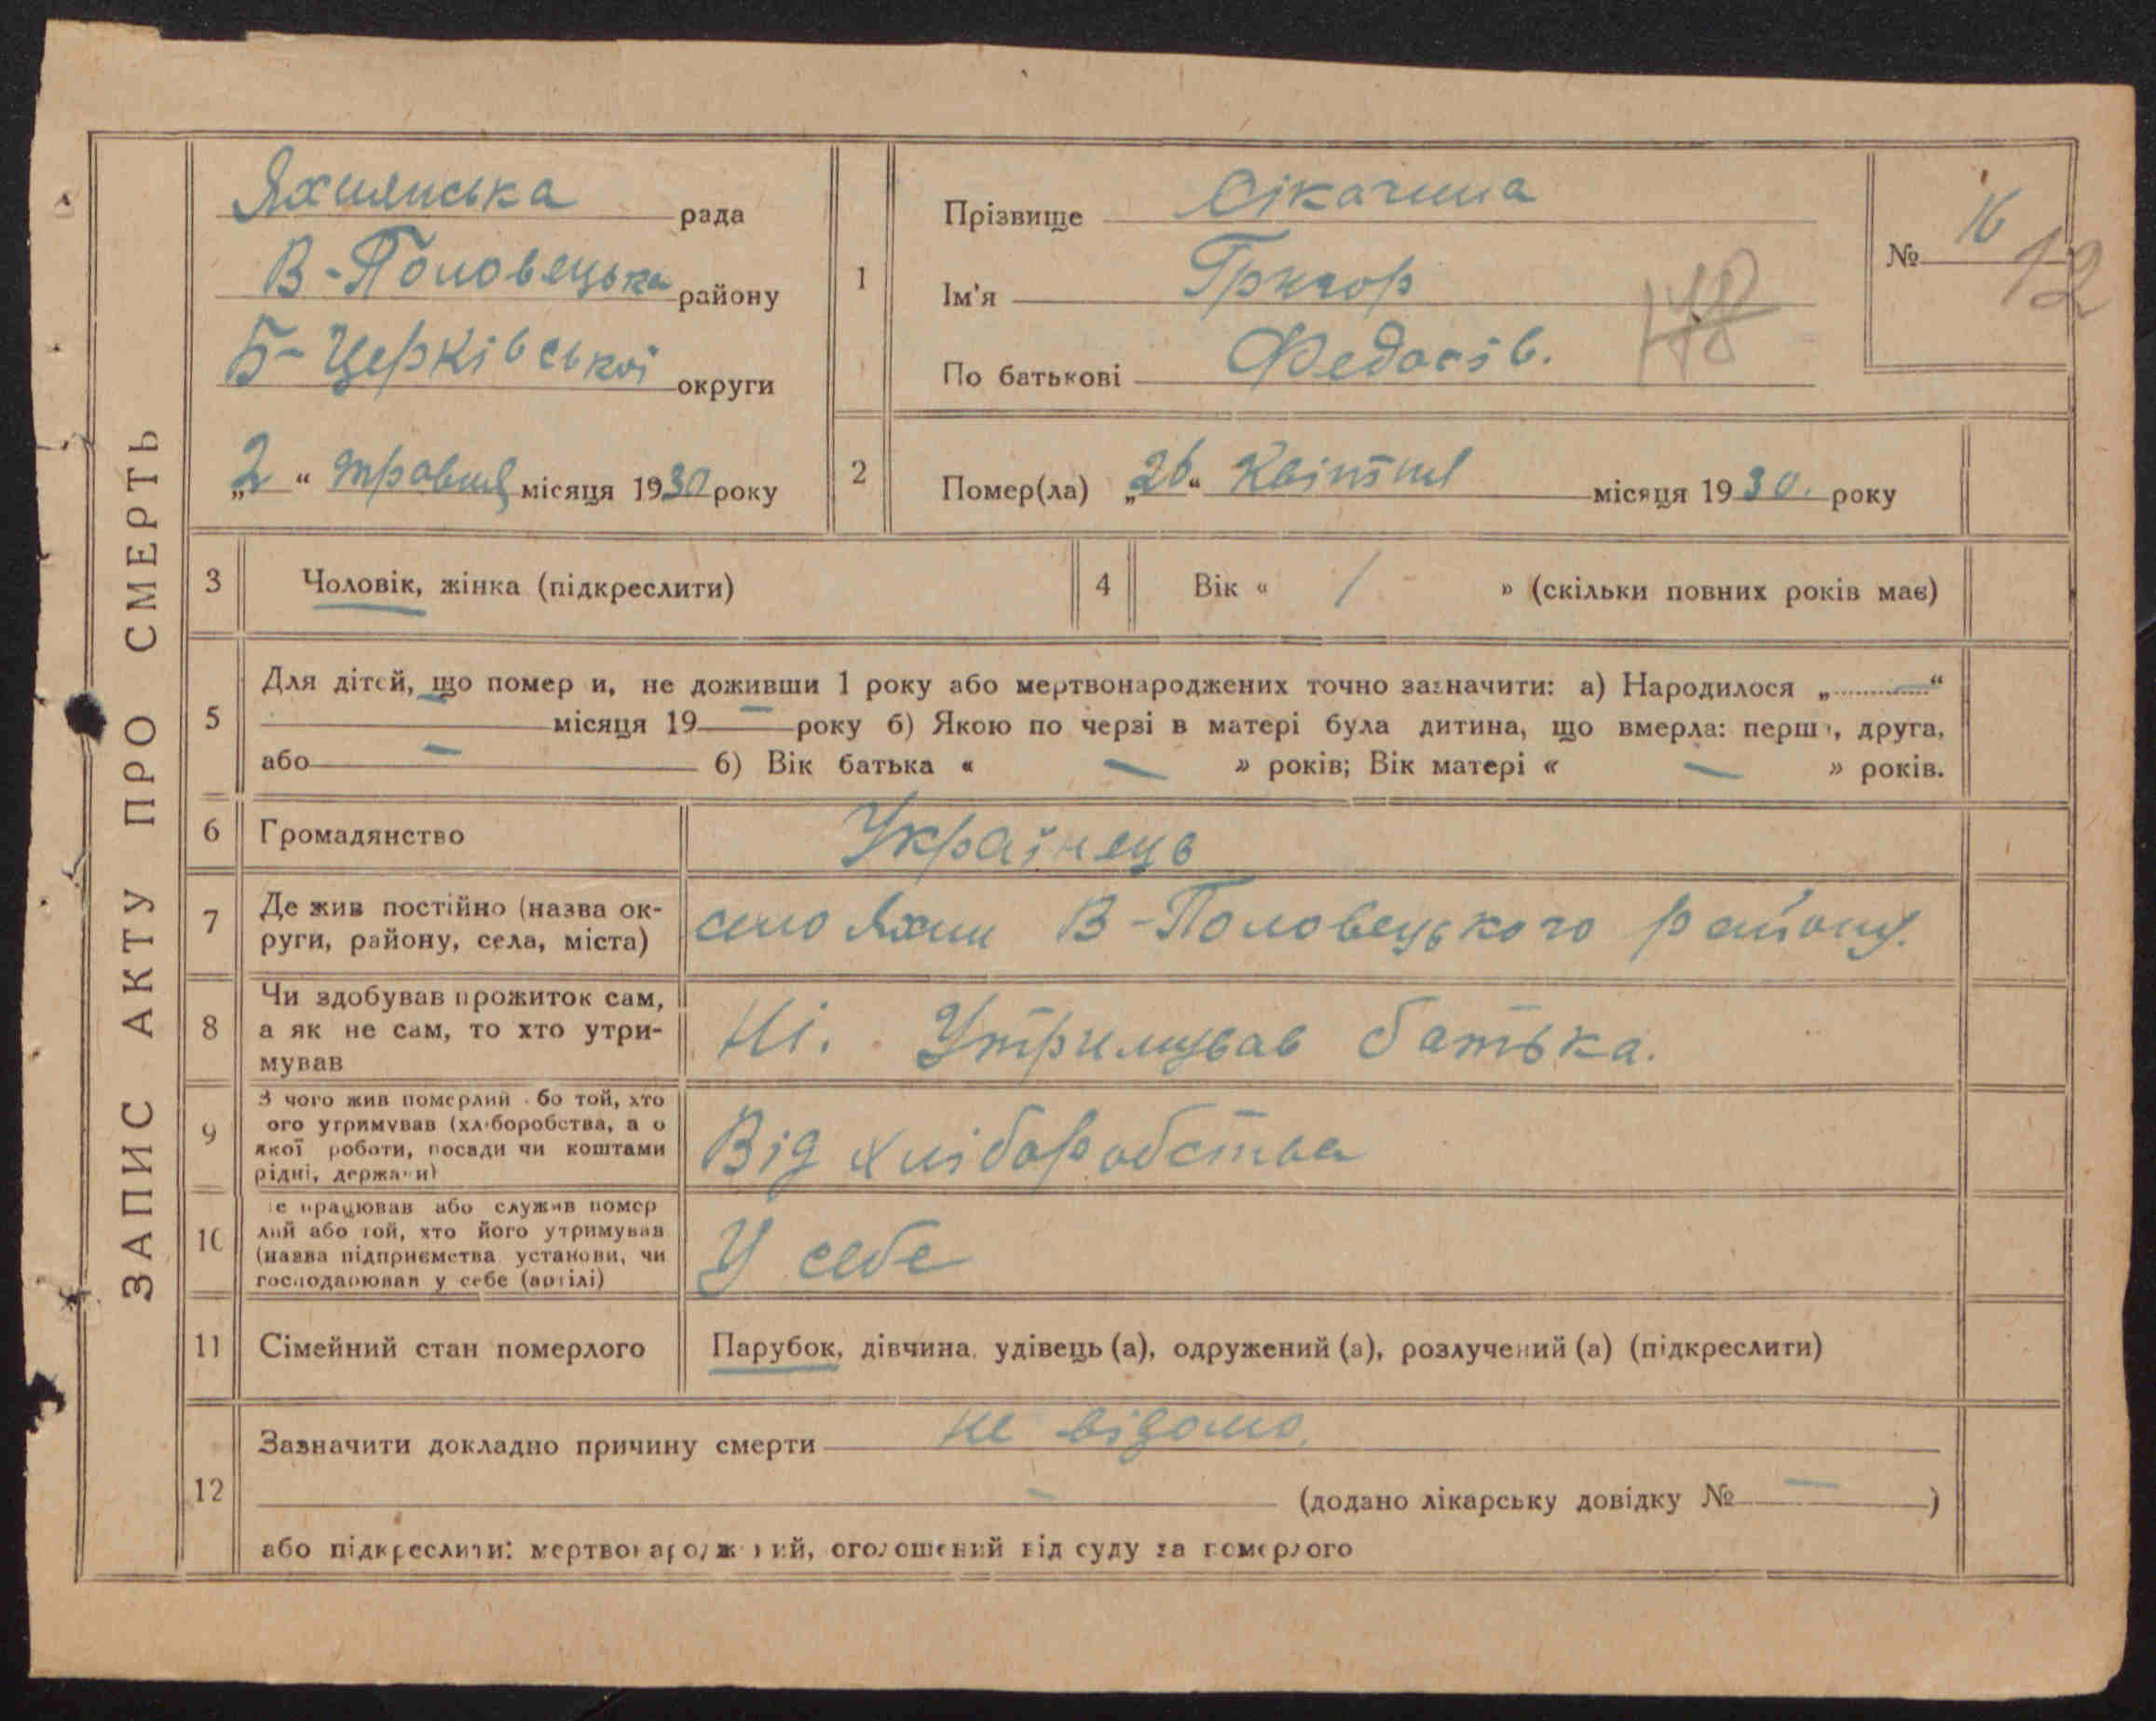 ЗАПИС АКТУ ПРО СМЕРТЬ
Яхнянська рада
В-Половецька району
Б-Церківської округи
„2“ травня місяця 1930 року
1
Прізвище Сікачина
Ім'я Григор
По батькові Федосів.
№ 16
12
178
2
Помер(ла) „26“ Квітня місяця 1930. року
3 Чоловік, жінка (підкреслити)
4 Вік « 1 » (скільки повних років має)
5
Для дітей, що помер и, не доживши 1 року або мертвонароджених точно зазначити: а) Народилося „ — “
місяця 19 — року б) Якою по черзі в матері була дитина, що вмерла: перш , друга,
або — б) Вік батька « — » років; Вік матері « — » років.
6 Громадянство Українець
7 Де жив постійно (назва ок-
руги, району, села, міста)
село Яхни В-Половецького району.
8 Чи здобував прожиток сам,
а як не сам, то хто утри-
мував
Ні. Утримував батька.
9 З чого жив померлий бо той, хто
ого утримував (хл боробства, а о
якої роботи, посади чи коштами
рідні, держа и)
Від хліборобства
10 е працював або служив помер
лий або той, хто його утримував
(назва підприємства установи, чи
господарював у себе (артілі)
У себе
11 Сімейний стан померлого Парубок, дівчина, удівець (а), одружений (а), розлучений (а) (підкреслити)
12 Зазначити докладно причину смерти не відомо.
— (додано лікарську довідку № — )
або підкреслити: мертвонародж ний, оголошений від суду за померлого